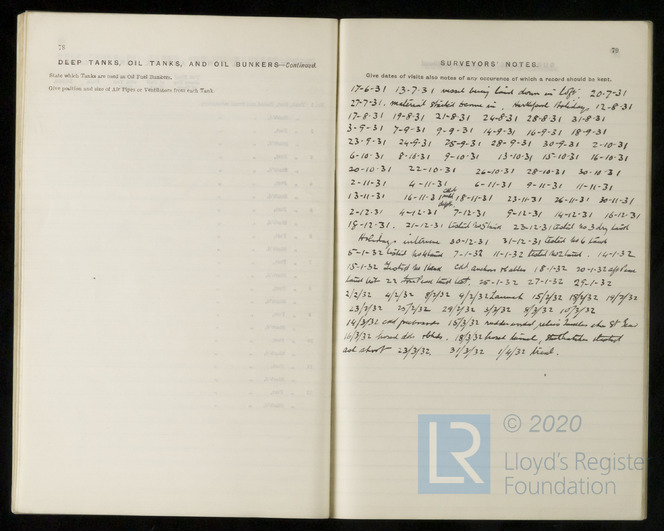 78
DEEP TANKS, OIL TANKS, AND OIL BUNKERS—Continued.
State which Tanks are used as Oil Fuel Bunkers.
Give position and size of Air Pipes or Ventilators from each Tank
79
SURVEYORS' NOTES.
Give dates of visits also notes of any occurence of which a record should be kept.
17-6-31 13-7-31 vessel being laid down in loft. 20-7-31
27-7-31. material started come in. Hartlepool Holiday 12-8-31
17-8-31 19-8-31 21-8-31 24-8-31 28-8-31 31-8-31
3-9-31 7-9-31 9-9-31 14-9-31 16-9-31 18-9-31
23-9-31 24-9-31 25-9-31 28-9-31 30-9-31 2-10-31
6-10-31 8-10-31 9-10-31 13-10-31 15-10-31 16-10-31
20-10-31 22-10-31 26-10-31 28-10-31 30-10-31
2-11-31 4-11-31 6-11-31 9-11-31 11-11-31
13-11-31 16-11-31 18-11-31 23-11-31 26-11-31 30-11-31
2-12-31 4-12-31 7-12-31 9-12-31 14-12-31 16-12-31
19-12-31. 21-12-31 tested No 5 23-12-31 tested No 3 dry tank
Holidays intervene 30-12-31 31-12-31 tested No 6 tank
5-1-32 tested No 4 tank 7-1-32 11-1-32 tested No 2 tank. 14-1-32
15-1-32 Tested No 1 tank anchors & cables 18-1-32 20-1-32
tank 22 tank 25-1-32 27-1-32 29-1-32
2/2/32 4/2/32 8/2/32 4/2/32 Launch 15/2/32 18/2/32 19/2/32
23/2/32 25/2/32 29/2/32 3/3/32 8/3/32 10/3/32
14/3/32 freeboards 15/3/32 rudder St Gear
16/3/32 18/3/32 tested
ash shoot 23/3/32. 31/3/32 1/4/32 trial.
© 2020
LR
Lloyd's Register
Foundation